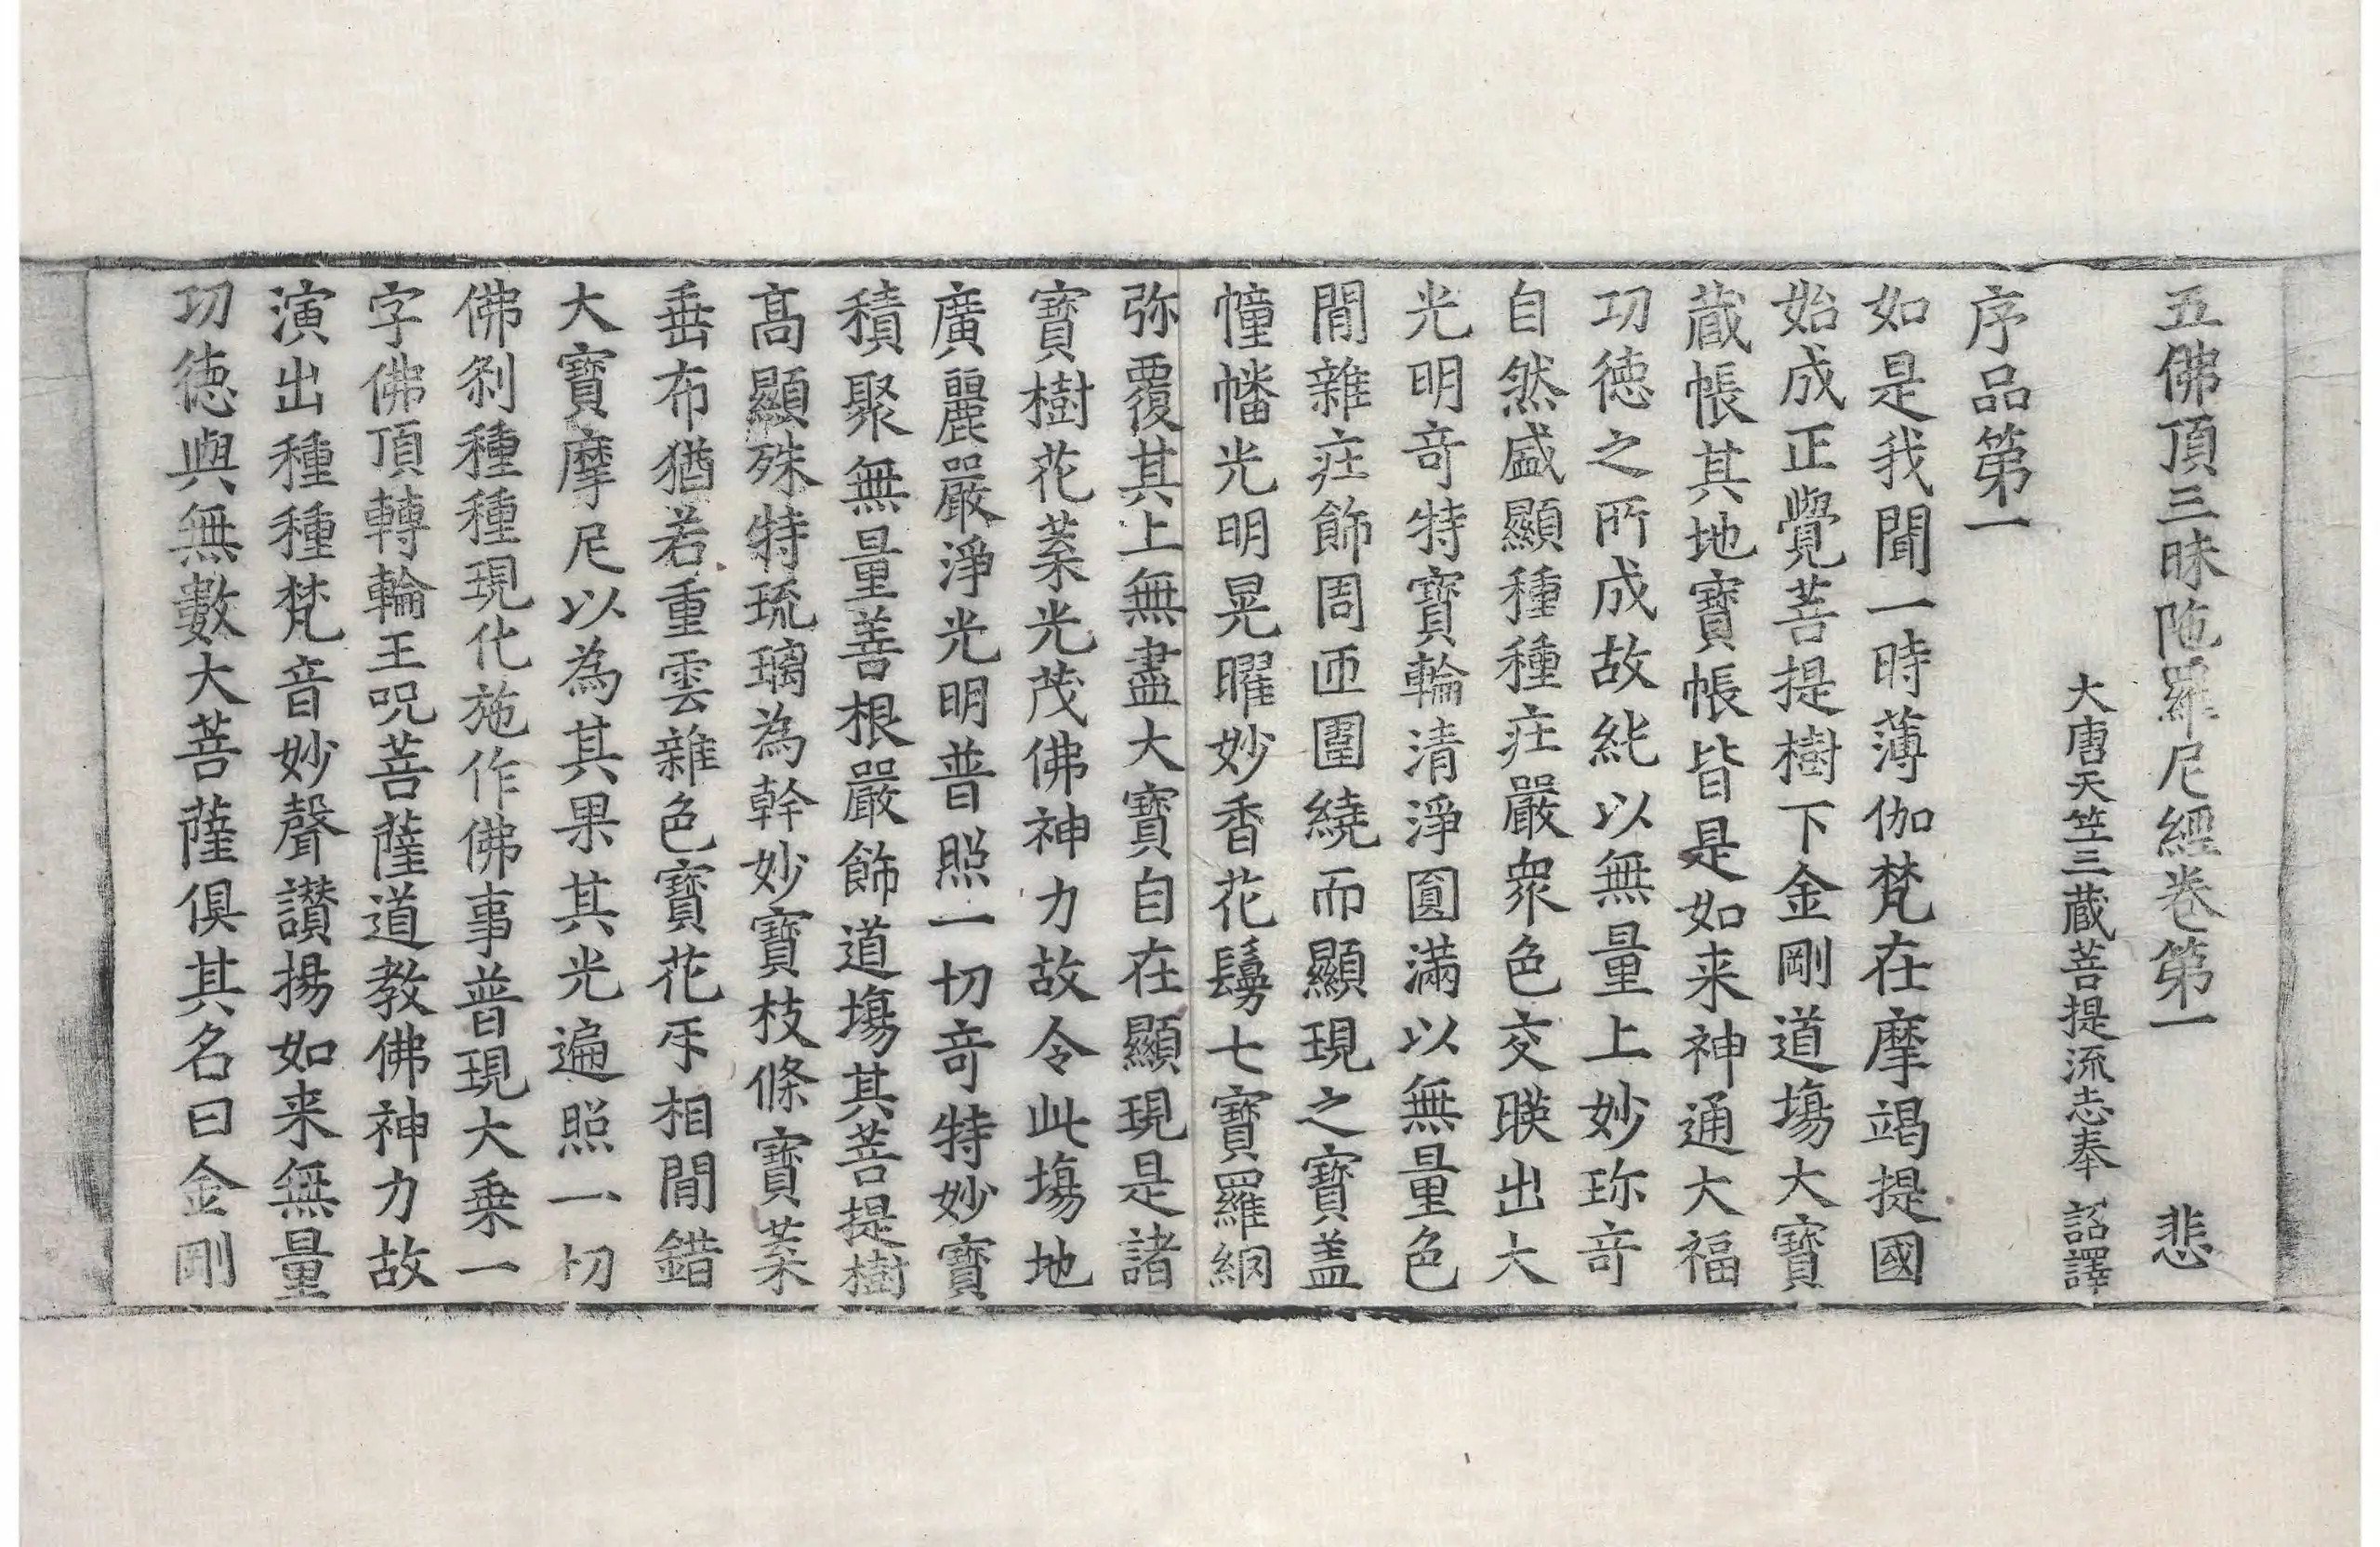 五佛頂三昧陁羅尼經卷第一　悲
大唐天竺三藏菩提流志奉　詔譯
序品第一
如是我聞一時薄伽梵在摩竭提國
始成正覺菩提樹下金剛道場大寶
藏帳其地寶帳皆是如来神通大福
功德之所成故紕以無量上妙珎奇
自然盛顯種種庄嚴衆色交暎出大
光明竒特寶輪清淨圓滿以無量色
間雜庄飾周匝圍繞而顯現之寶盖
幢幡光明晃曜妙香花鬘七寶羅網
弥覆其上無盡大寶自在顯現是諸
寶樹花菓光茂佛神力故令此場地
廣麗嚴淨光明普照一切竒特妙寶
積聚無量善根嚴飾道場其菩提樹
髙顯殊特琉璃為幹妙寶枝條寶葉
垂布猶若重雲雜色寶花㸦相間錯
大寶摩尼以為其果其光遍照一切
佛刹種種現化施作佛事普現大乗一
字佛頂轉輪王呪菩薩道教佛神力故
演出種種梵音妙聲讃揚如来無量
功德與無數大菩薩俱其名曰金剛